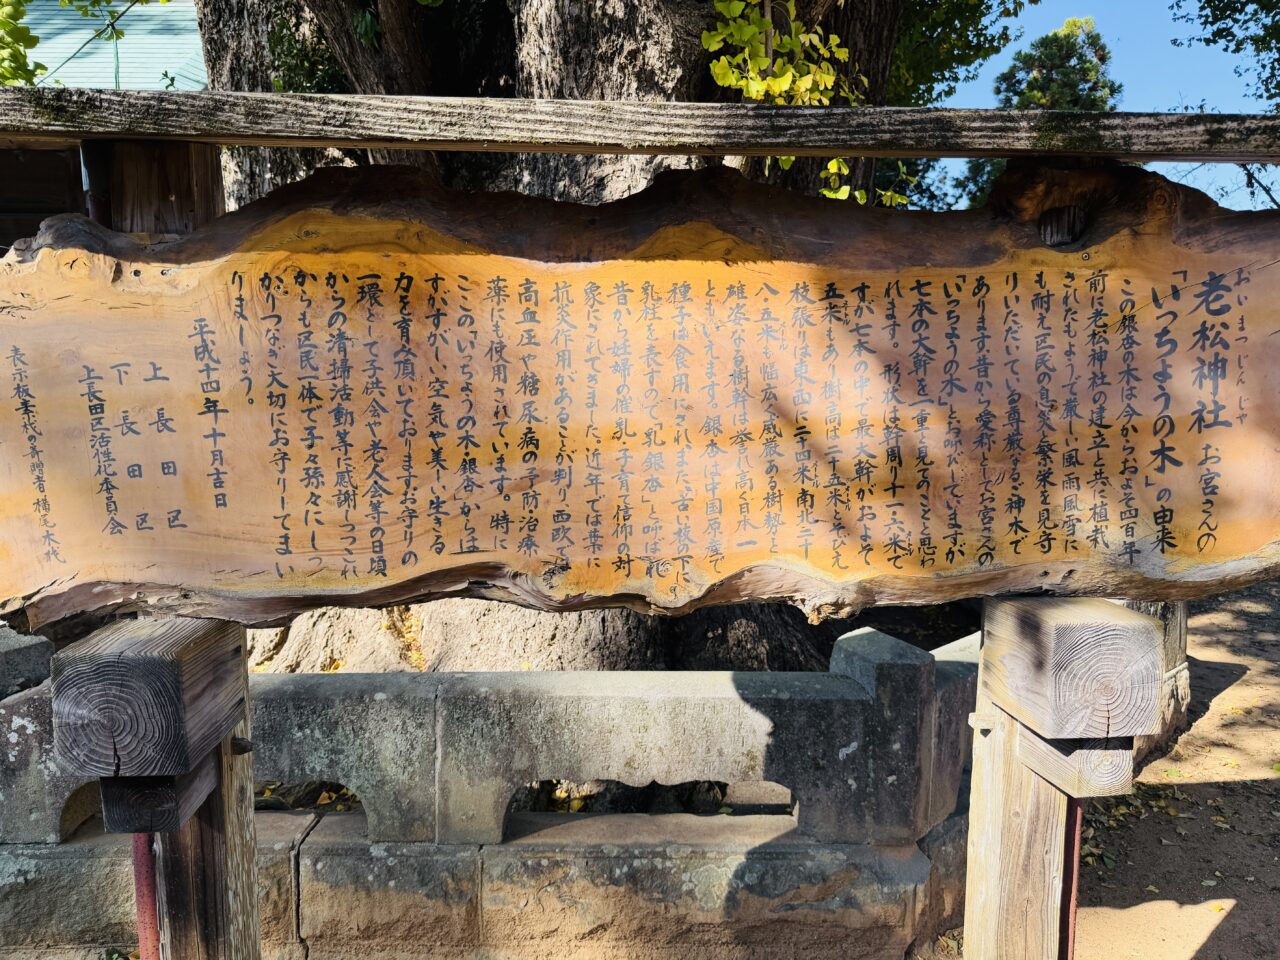 おいまつじんじゃ
老松神社 お宮さんの
「いっちょうの木」の由来
この銀杏の木は今からおよそ四百年
前に老松神社の建立と共に植栽
されたもようで厳しい風雨風雪に
も耐え区民の息災と繁栄を見守
りいただいている尊厳なるご神木で
あります昔から愛称としてお宮さんの
「いっちょうの木」とお呼びしていますが
七本の大幹を一重と見てのことと思わ
れます。形状は幹周り十一・六米で
すが七本の中で最大幹がおよそ
五米もあり樹高は二十五米とそびえ
枝張りは東西に二十四米南北二十
八・五米も幅広く威厳ある樹勢と
雄姿なる樹幹は誉れ高く日本一
ともいえます。銀杏は中国原産で
種子は食用にされまた古い枝の下に
乳柱を表すので「乳銀杏」と呼ばれ
昔から妊婦の催乳、子育て信仰の対
象にされてきました。近年では葉に
抗炎作用があることが判り西欧では
高血圧や糖尿病の予防治療
薬にも使用されています。特に
ここのいっちょうの木・銀杏からは
すがすがしい空気や美しい生きる
力を育み頂いておりますお守りの
一環として子供会や老人会等の日頃
からの清掃活動等に感謝しつつこれ
からも区民一体で子々孫々にしっ
かりつなぎ大切にお守りしてまい
りましょう。
平成十四年十月吉日
上長田区
下長田区
上長田区活性化委員会
表示板素材の寄贈者 横尾木材